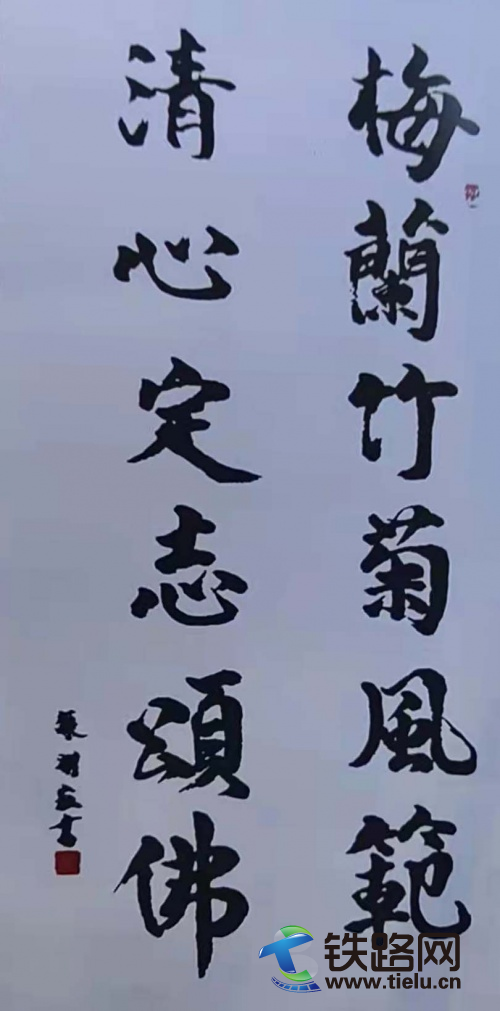 梅蘭竹菊風範
清心定志頌佛
铁路网
www.tielu.cn